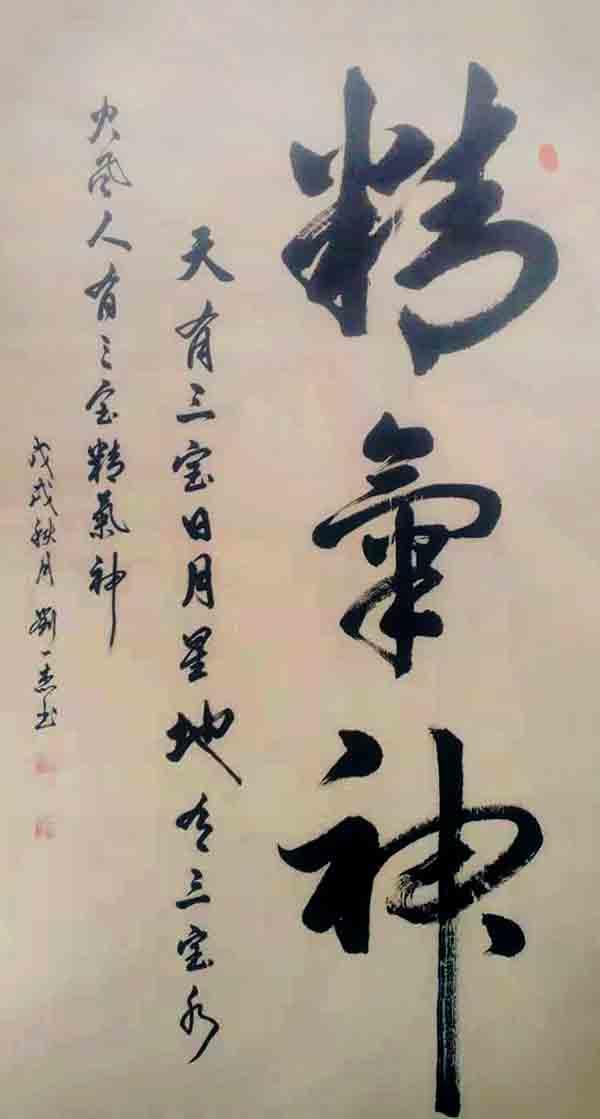 精氣神
天有三宝日月星地有三宝水
火風人有三宝精氣神
戊戌秋月劉一杰书